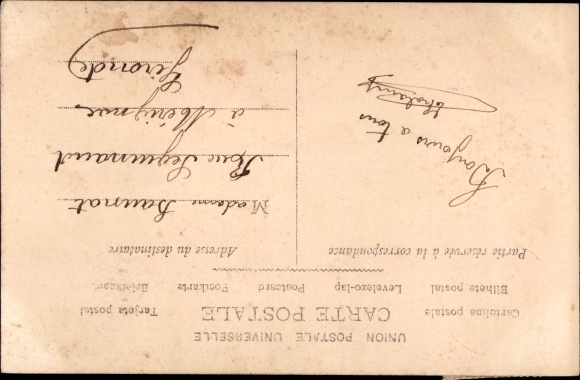 UNION POSTALE UNIVERSELLE
CARTE POSTALE
Cartolina postale Tarjeta postal
Bilhete postal Levelező-lap Postcard Postkarte Briefkaart
Partie réservée à la correspondance
Adresse du destinataire
Bonjours a tous
Madame Launat
Rue
à Mérignac
Gironde